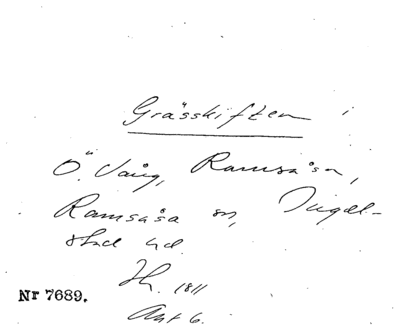 Grässkiften i
Ö. Vång, Ramsåsa,
Ramsåsa sn, Ingel-
stad hd.
Sk. 1811
Nr 7689.
Akt 6.